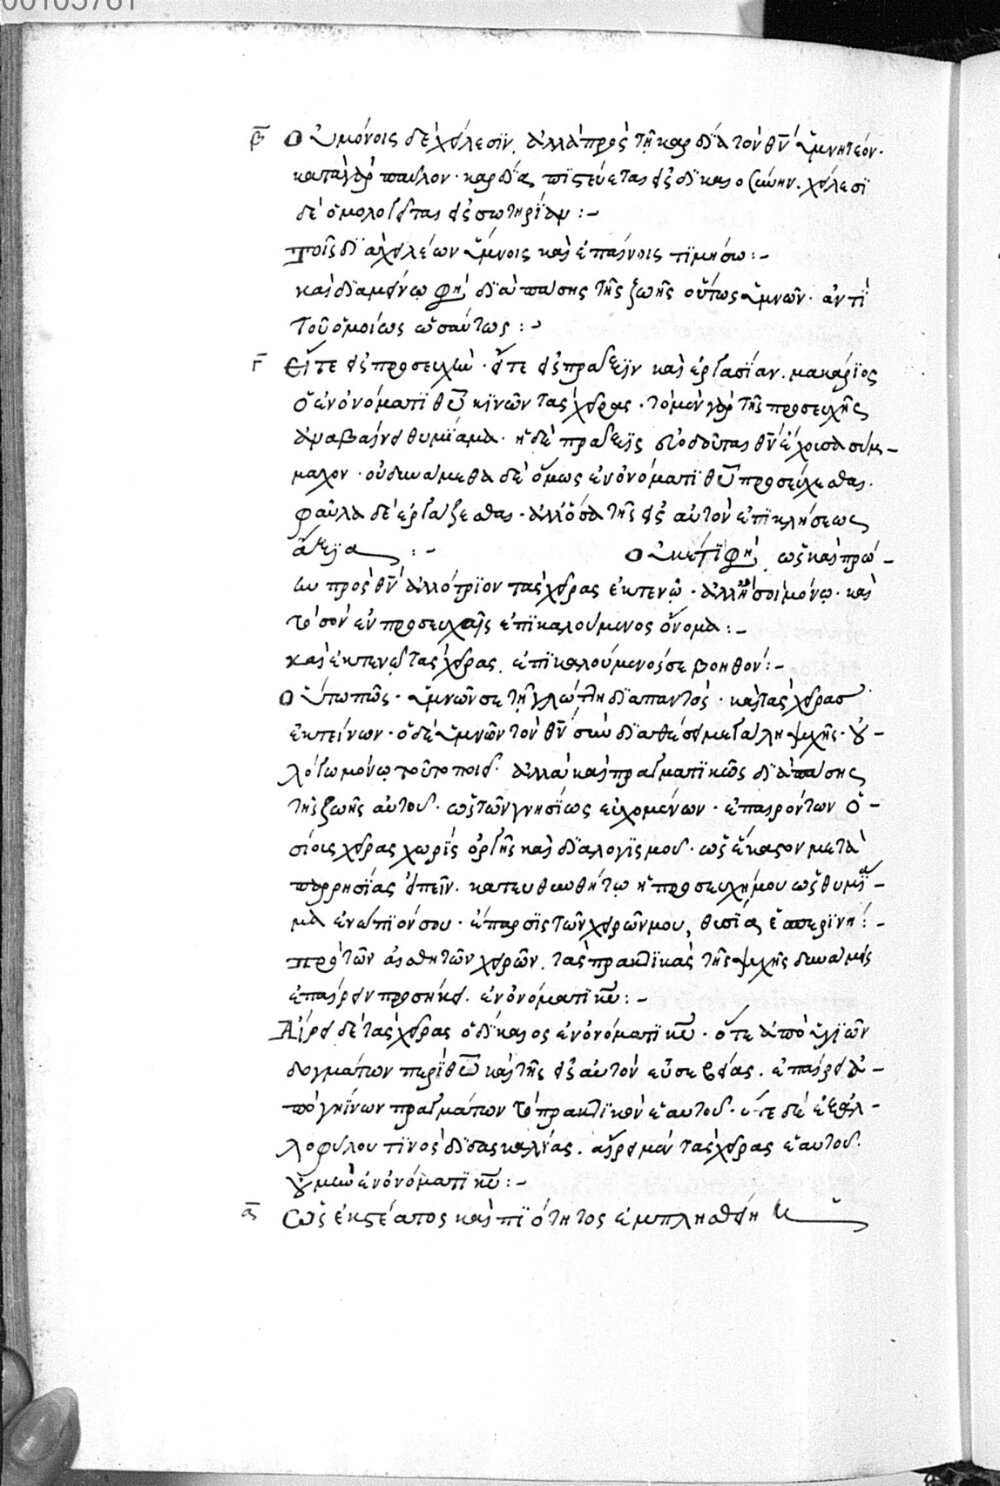 00105761
β Οὐ μόνοις δὲ χείλεσιν, ἀλλὰ πρὸς τῇ καρδίᾳ τὸν θν ὑμνητέον.
κατὰ γὰρ παυλον· καρδίᾳ πιστεύεται εἰς δικαιοσύνην. χείλεσι
δὲ ὁμολογεῖται εἰς σωτηρίαν :-
τοῖς διὰ χειλέων ὕμνοις καὶ ἐπαίνοις τιμήσω :-
καὶ διαμένω φη διὰ πάσης τῆς ζωῆς οὕτως ὑμνῶν. ἀντὶ
τοῦ ὁμοίως ὡσαύτως :-
γ Εἴτε εἰς προσευχὴν· εἴτε εἰς πρᾶξιν καὶ ἐργασίαν. μακάριος
ὁ ἐν ὀνόματι θυ κινῶν τὰς χεῖρας. τὸ μὲν γὰρ τῆς προσευχῆς
ἀναβαίνει θυμίαμα. ἡ δὲ πρᾶξις εὐοδοῦται θν ἔχουσα σύμ-
μαχον. οὐ δυνάμεθα δὲ ὅμως ἐν ὀνόματι θυ προσεύχεσθαι.
φαῦλα δὲ ἐργάζεσθαι. ἀλλ' ὅσα τῆς εἰς αὐτὸν ἐπικλήσεως
ἄξια :- Οὐκέτι φη, ὡς καὶ πρώ-
ην πρὸς θν ἀλλότριον τὰς χεῖρας ἐκτενῶ. ἀλλ' ἢ σοὶ μόνῳ. καὶ
τὸ σὸν ἐν προσευχαῖς ἐπικαλούμενος ὄνομα :-
καὶ ἐκτενεῖ τὰς χεῖρας, ἐπικαλούμενός σε βοηθόν :-
Οὕτω πῶς· ὑμνῶν σε τῇ γλώττῃ διαπαντὸς. καὶ τὰς χεῖρας
ἐκτείνων. ὁ δὲ ὑμνῶν τὸν θν σὺν διαθέσει μεγάλῃ ψυχῆς· οὐ
λόγῳ μόνῳ τοῦτο ποιεῖ. ἀλλὰ καὶ πραγματικῶς διὰ πάσης
τῆς ζωῆς αὐτοῦ. ὡς τῶν γνησίως εὐχομένων. ἐπαιρόντων ὁ-
σίους χεῖρας χωρὶς ὀργῆς καὶ διαλογισμοῦ. ὡς ἕκαστον μετὰ
παρρησίας εἰπεῖν. κατευθυνθήτω ἡ προσευχή μου ὡς θυμία-
μα ἐνώπιόν σου. ἔπαρσις τῶν χειρῶν μου, θυσία ἑσπερινή :-
πρὸ τῶν αἰσθητῶν χειρῶν. τὰς πρακτικὰς τῆς ψυχῆς δυνάμεις
ἐπαίρειν προσήκει. ἐν ὀνόματι κυ :-
Αἴρει δὲ τὰς χεῖρας ὁ δίκαιος ἐν ὀνόματι κυ. ὅτε ἀπὸ ὑγιῶν
δογμάτων περὶ θυ καὶ τῆς εἰς αὐτὸν εὐσεβείας. ἐπαίρει ἀ-
πὸ γηΐνων πραγμάτων τὸ πρακτικὸν ἑαυτοῦ. ὅτε δὲ ἐξ ἀλ-
λοφύλου τινὸς διδασκαλίας. αἴρει μὲν τὰς χεῖρας ἑαυτοῦ.
οὐ μὴν ἐν ὀνόματι κυ :-
ς Ὡς ἐκ στέατος καὶ πιότητος ἐμπλησθείη